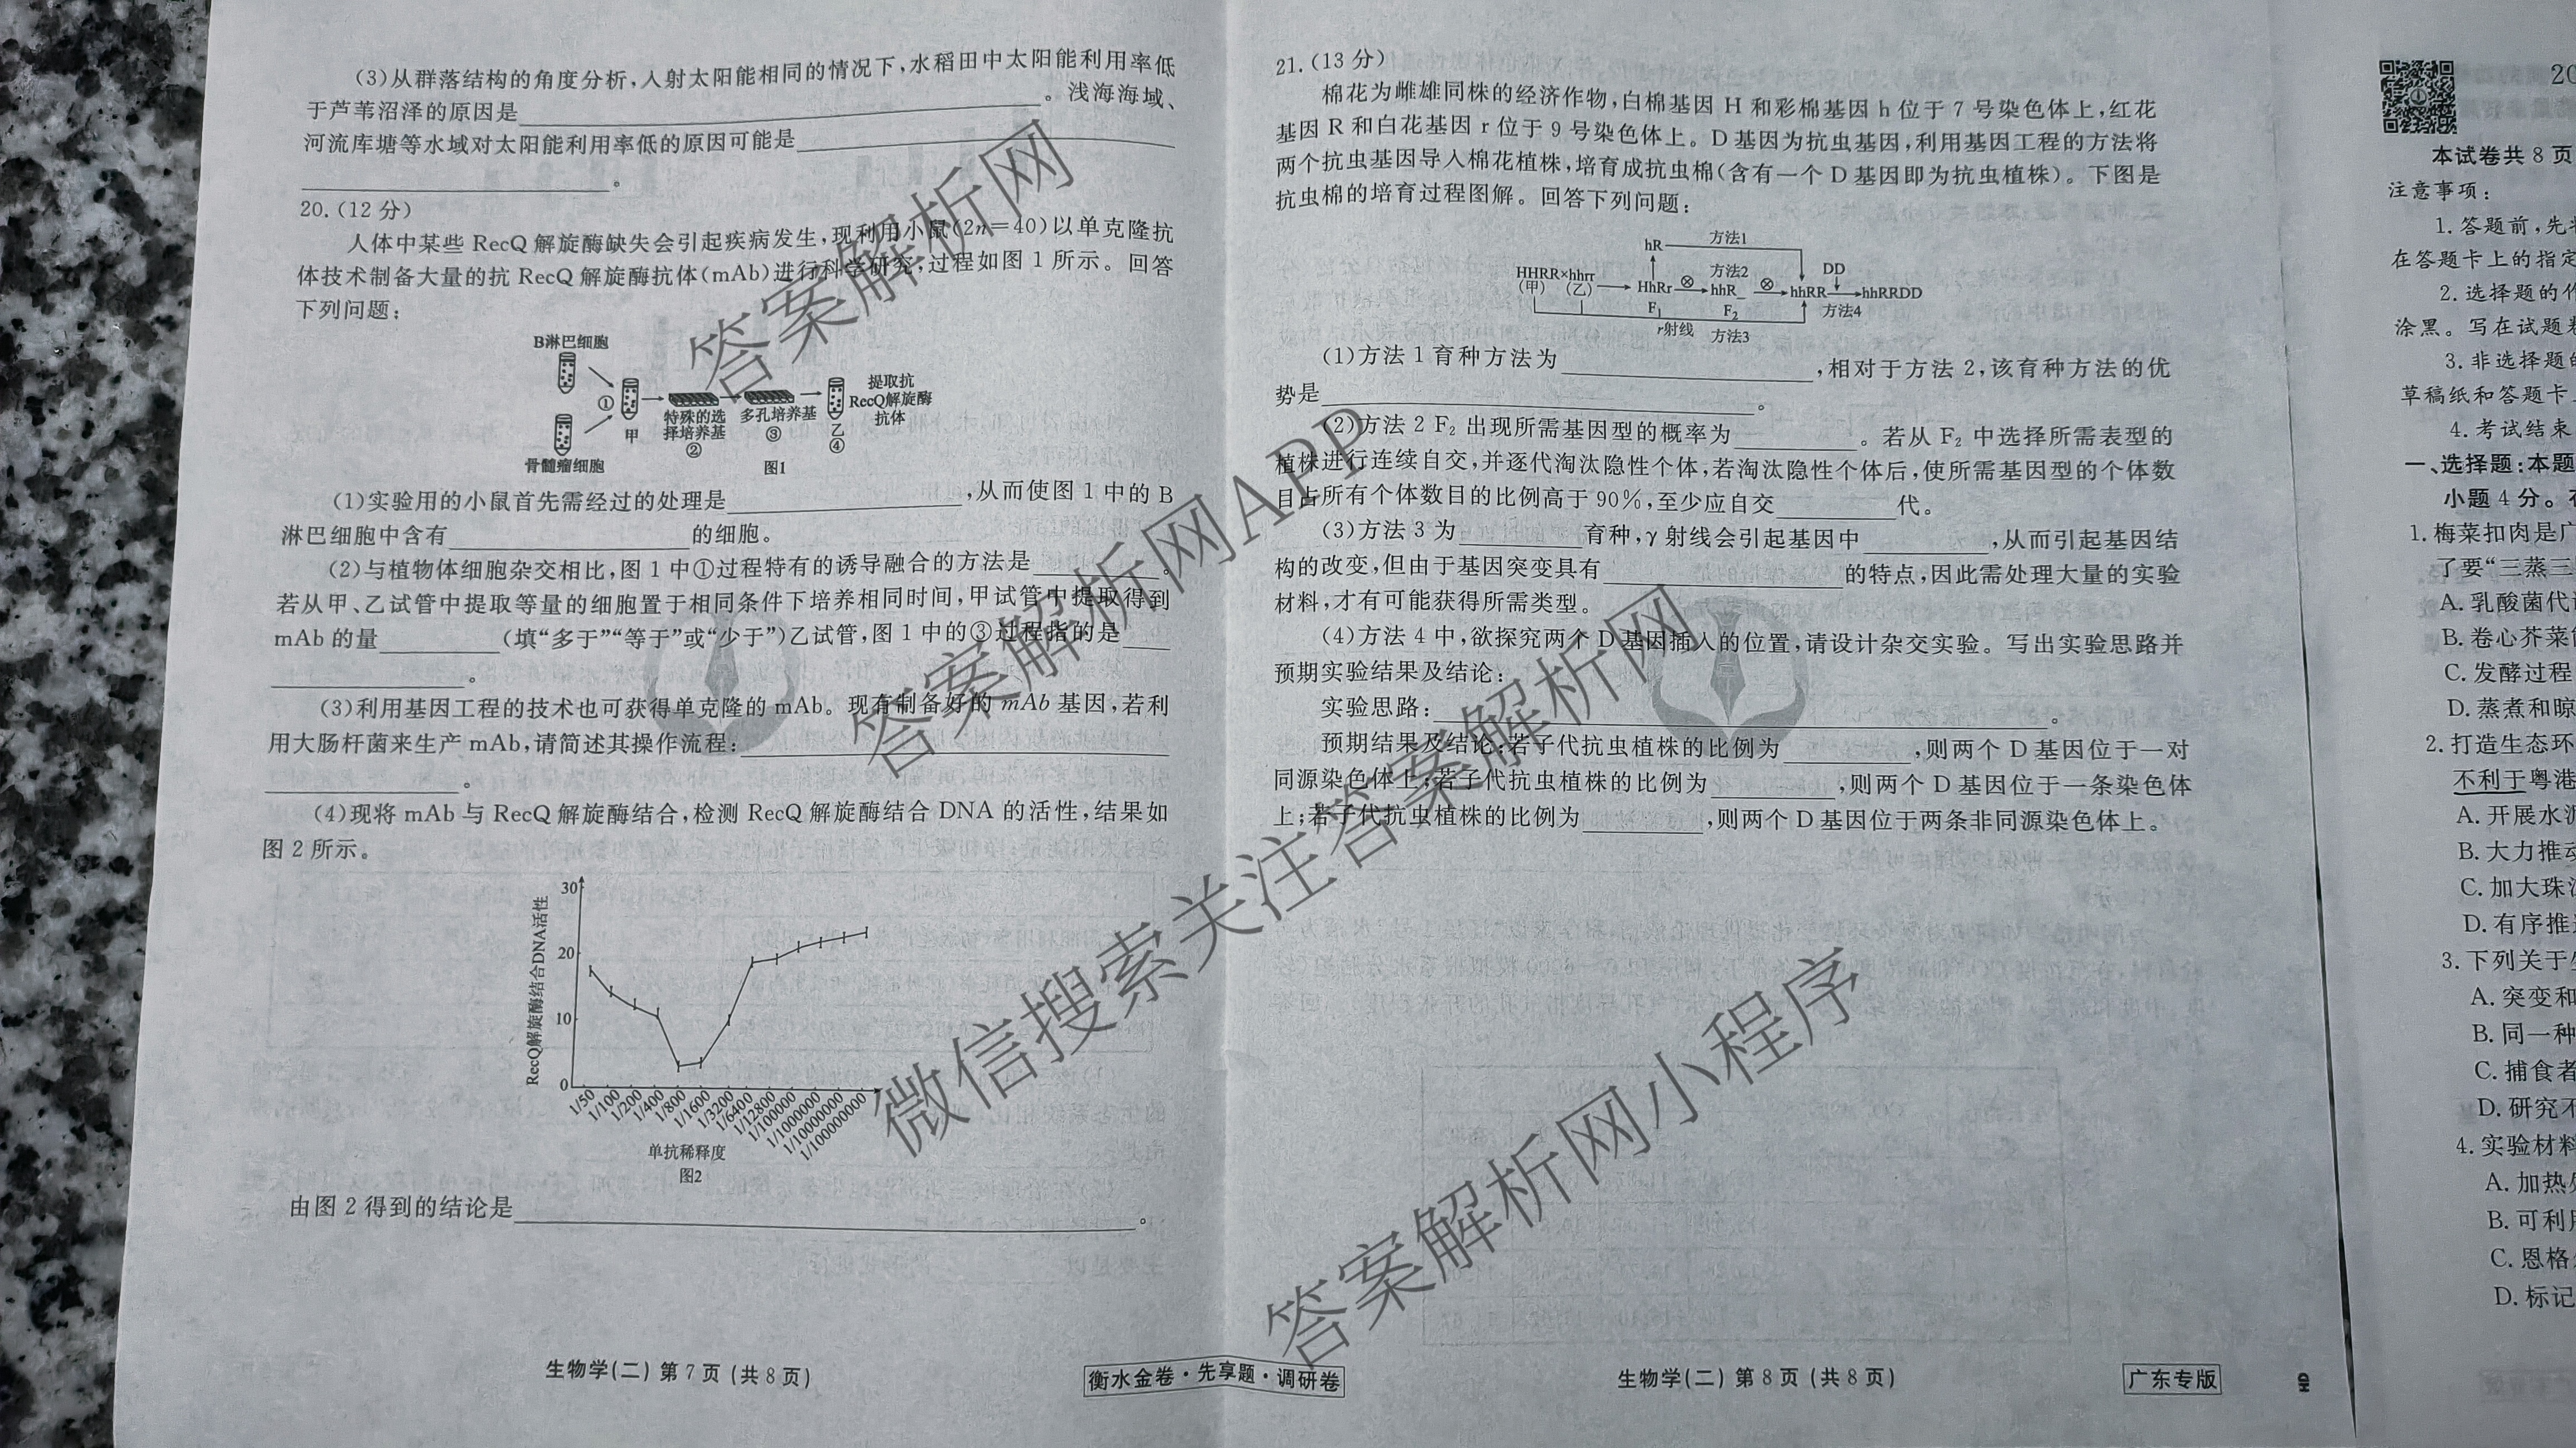 (3)从群落结构的角度分析,入射太阳能相同的情况下,水稻田中太阳能利用率低
于芦苇沼泽的原因是____。浅海海域、
河流库塘等水域对太阳能利用率低的原因可能是____
____。
20.(12分)
人体中某些 RecQ 解旋酶缺失会引起疾病发生,现利用小鼠(2n=40)以单克隆抗
体技术制备大量的抗 RecQ 解旋酶抗体(mAb)进行科学研究,过程如图1所示。回答
下列问题:
B淋巴细胞
骨髓瘤细胞
①
甲
特殊的选
择培养基
②
多孔培养基
③
乙
④
提取抗
RecQ解旋酶
抗体
图1
(1)实验用的小鼠首先需经过的处理是____,从而使图1中的B
淋巴细胞中含有____的细胞。
(2)与植物体细胞杂交相比,图1中①过程特有的诱导融合的方法是____。
若从甲、乙试管中提取等量的细胞置于相同条件下培养相同时间,甲试管中提取得到
mAb 的量____(填“多于”“等于”或“少于”)乙试管,图1中的③过程指的是____
____。
(3)利用基因工程的技术也可获得单克隆的 mAb。现有制备好的 mAb 基因,若利
用大肠杆菌来生产 mAb,请简述其操作流程:____
____。
(4)现将 mAb 与 RecQ 解旋酶结合,检测 RecQ 解旋酶结合 DNA 的活性,结果如
图2所示。
RecQ解旋酶结合DNA活性
30
20
10
0
1/50
1/100
1/200
1/400
1/800
1/1600
1/3200
1/6400
1/12800
1/100000
1/1000000
1/10000000
1/100000000
单抗稀释度
图2
由图2得到的结论是____。
生物学(二) 第7页(共8页)
衡水金卷·先享题·调研卷
21.(13分)
棉花为雌雄同株的经济作物,白棉基因 H 和彩棉基因 h 位于7号染色体上,红花
基因 R 和白花基因 r 位于9号染色体上。D 基因为抗虫基因,利用基因工程的方法将
两个抗虫基因导入棉花植株,培育成抗虫棉(含有一个 D 基因即为抗虫植株)。下图是
抗虫棉的培育过程图解。回答下列问题:
hR
方法1
HHRR×hhrr
(甲) (乙)
HhRr
F₁
⊗
方法2
hhR_
F₂
⊗
hhRR
DD
方法4
hhRRDD
r射线
方法3
(1)方法1育种方法为____,相对于方法2,该育种方法的优
势是____。
(2)方法2 F₂ 出现所需基因型的概率为____。若从 F₂ 中选择所需表型的
植株进行连续自交,并逐代淘汰隐性个体,若淘汰隐性个体后,使所需基因型的个体数
目占所有个体数目的比例高于90%,至少应自交____代。
(3)方法3为____育种,γ射线会引起基因中____,从而引起基因结
构的改变,但由于基因突变具有____的特点,因此需处理大量的实验
材料,才有可能获得所需类型。
(4)方法4中,欲探究两个 D 基因插入的位置,请设计杂交实验。写出实验思路并
预期实验结果及结论:
实验思路:____。
预期结果及结论:若子代抗虫植株的比例为____,则两个 D 基因位于一对
同源染色体上;若子代抗虫植株的比例为____,则两个 D 基因位于一条染色体
上;若子代抗虫植株的比例为____,则两个 D 基因位于两条非同源染色体上。
生物学(二) 第8页(共8页)
广东专版
HD
20
本试卷共8页
注意事项:
1.答题前,先将
在答题卡上的指定
2.选择题的作
涂黑。写在试题卷
3.非选择题的
草稿纸和答题卡
4.考试结束
一、选择题:本题
小题4分。在
1.梅菜扣肉是广
了要“三蒸三
A.乳酸菌代谢
B.卷心芥菜
C.发酵过程
D.蒸煮和晾
2.打造生态环
不利于粤港
A.开展水源
B.大力推动
C.加大珠
D.有序推进
3.下列关于
A.突变和
B.同一种
C.捕食者
D.研究不
4.实验材料
A.加热
B.可利用
C.恩格
D.标记
答案解析网
答案解析网APP
微信搜索关注答案解析网
答案解析网小程序